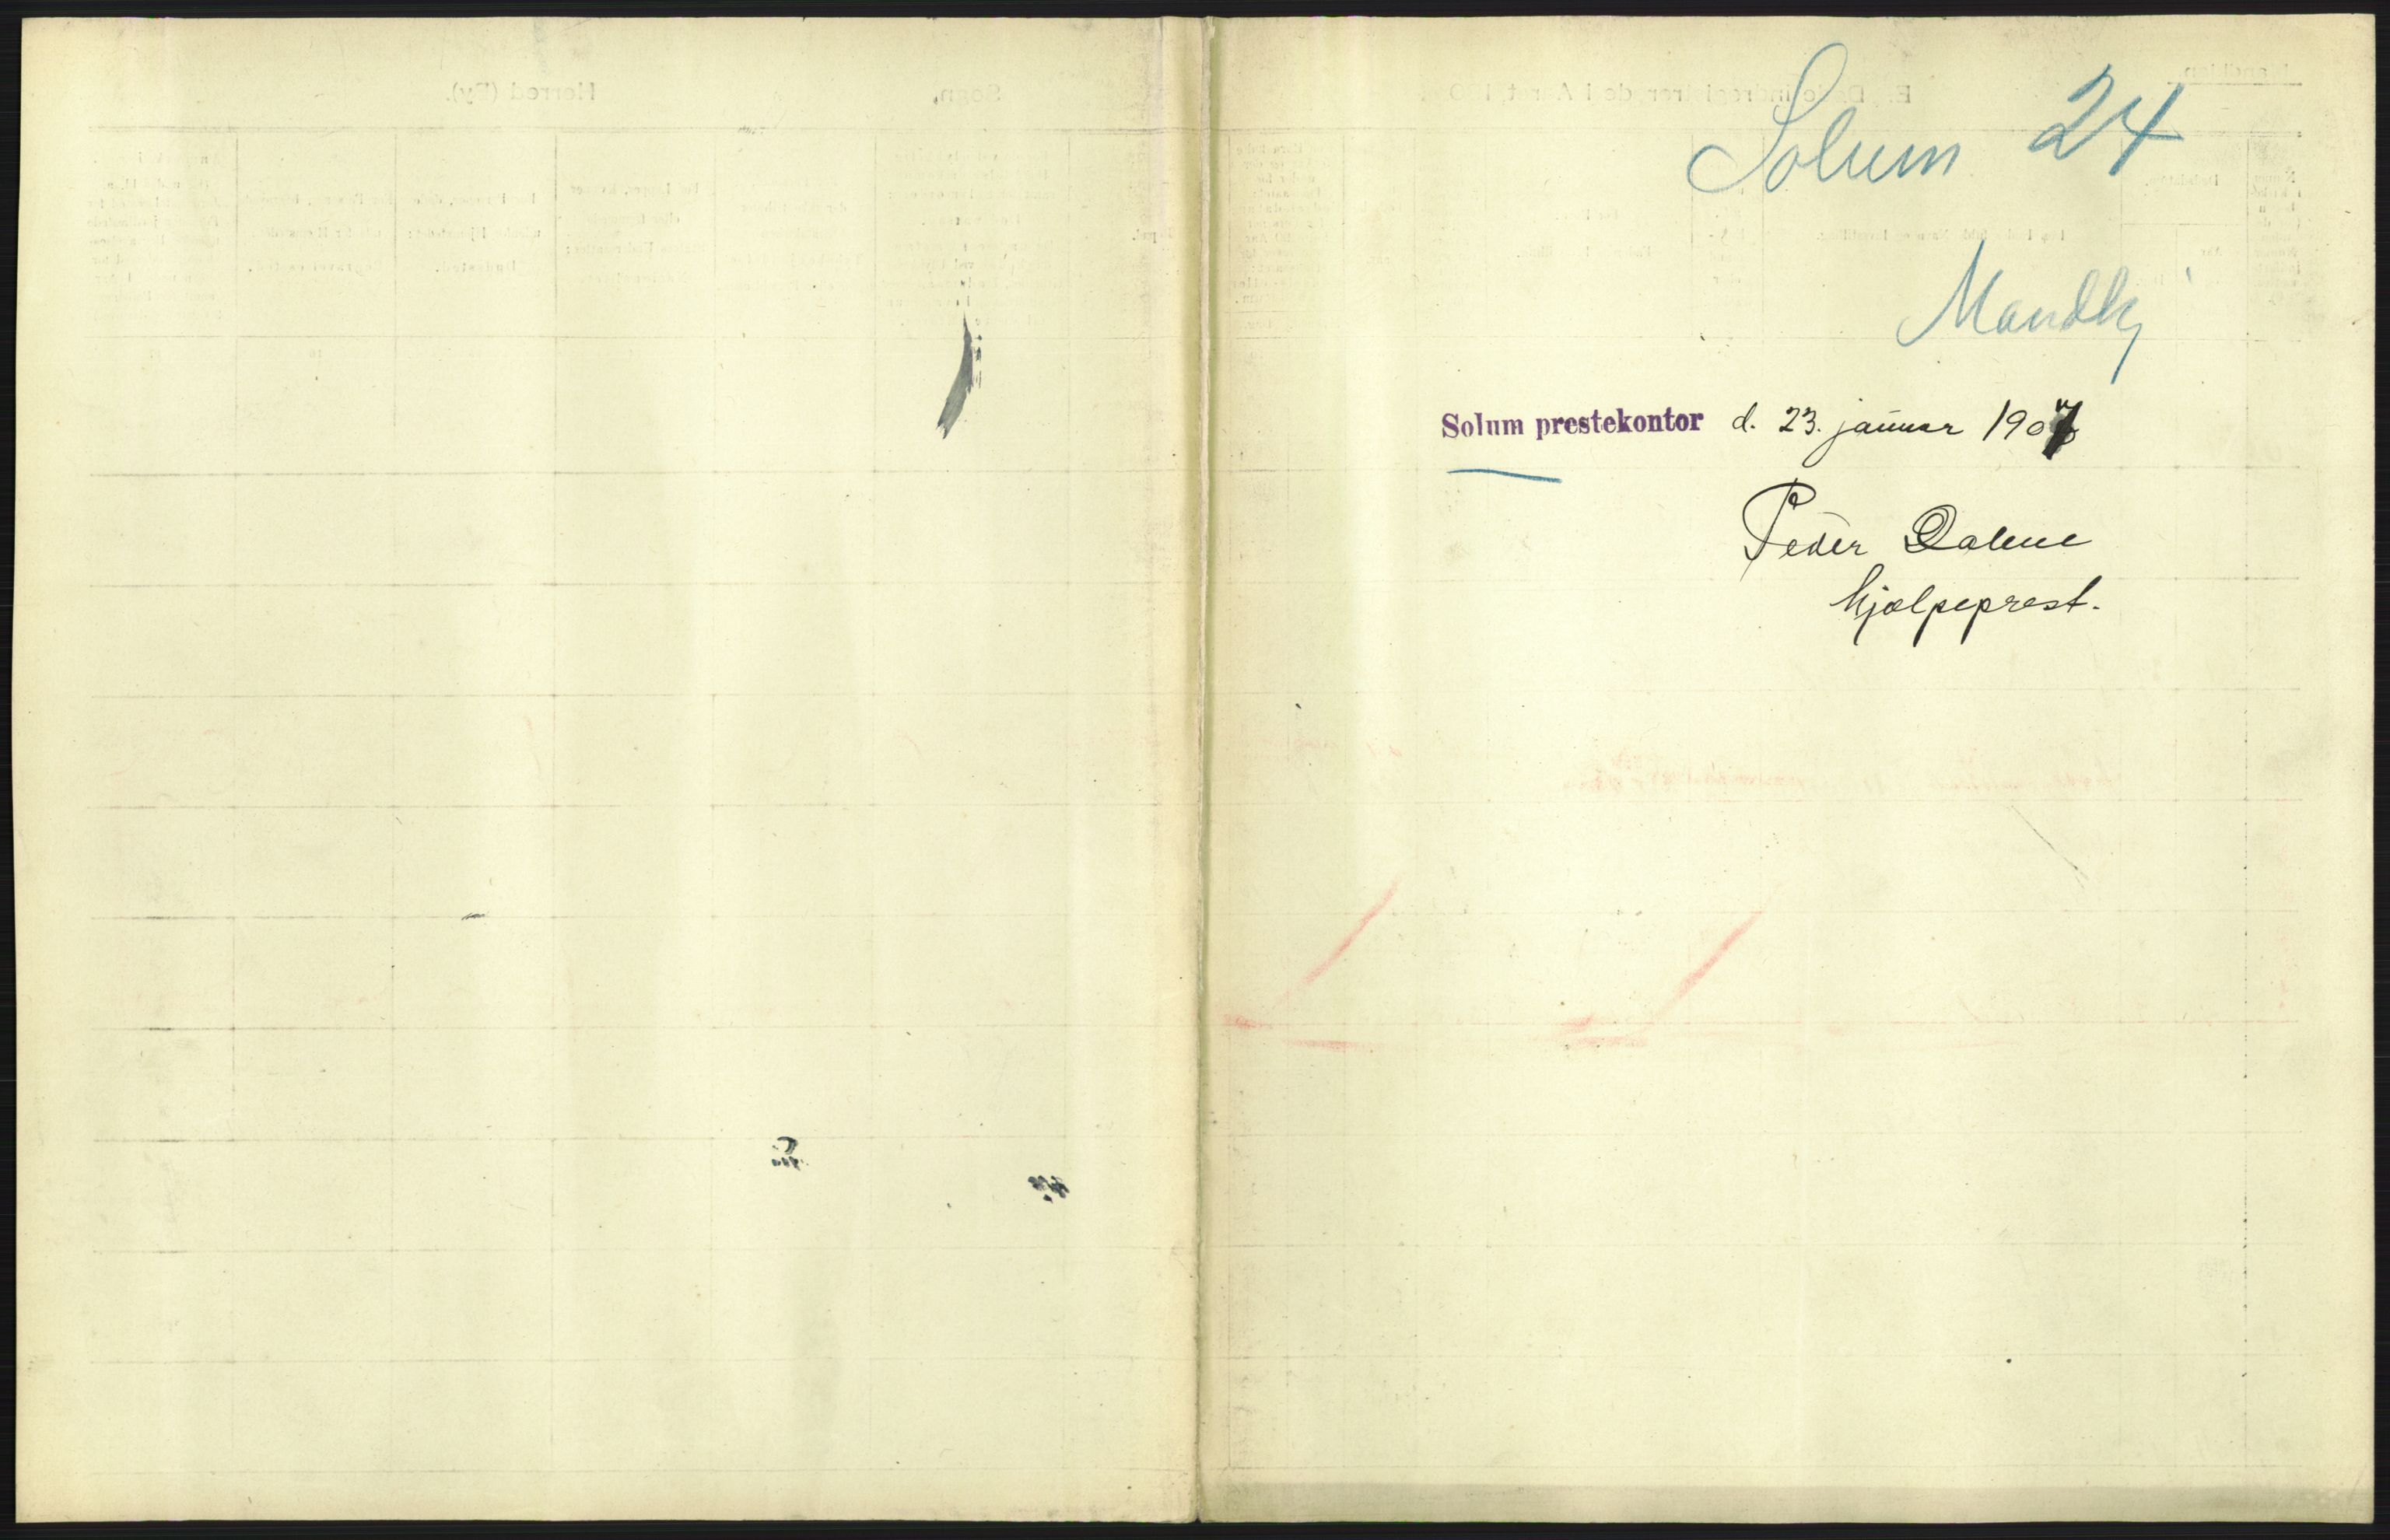 Solum 24
Mandkj
Solum prestekontor d. 23. januar 1907
Peder Dalene
hjælpeprest.